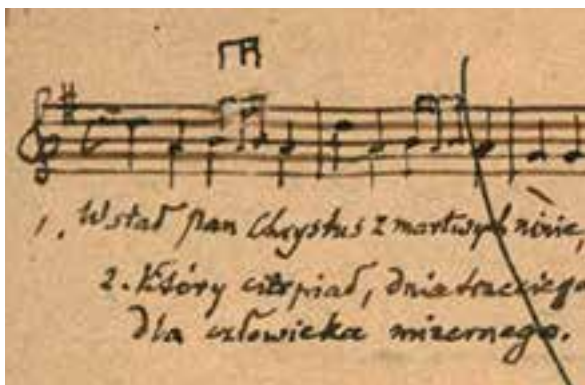 1. Wstał pan Chrystus z martwych ninie,
2. Który cierpiał, dnia trzeciego
dla człowieka mizernego.